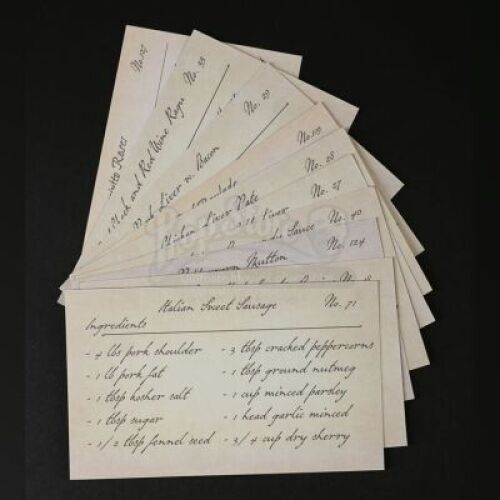 No. 127
Roses
No. 33
and Red Wine Ragu
No. 29
Liver w. Bacon
No. 119
No. 28
Chicken Liver Pate
No. 27
Liver
Sauce
No. 40
Mutton
No. 124
Italian Sweet Sausage
No. 71
Ingredients
- 4 lbs pork shoulder
- 3 tbsp cracked peppercorns
- 1 lb pork fat
- 1 tbsp ground nutmeg
- 1 tbsp kosher salt
- 1 cup minced parsley
- 1 tbsp sugar
- 1 head garlic minced
- 1/2 tbsp fennel seed
- 3/4 cup dry sherry